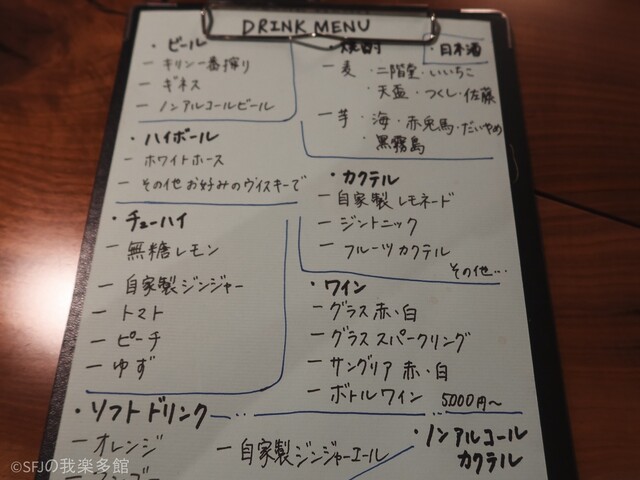 DRINK MENU
・ビール
ー キリン一番搾り
ー ギネス
ー ノンアルコールビール
・ハイボール
ー ホワイトホース
ー その他 お好みのウィスキーで
・チューハイ
ー 無糖レモン
ー 自家製ジンジャー
ー トマト
ー ピーチ
ー ゆず
・焼酎
・日本酒
ー 麦・二階堂・いいちこ
・天盃・つくし・佐藤
ー 芋・海・赤兎馬・だいやめ
・黒霧島
・カクテル
ー 自家製レモネード
ー ジントニック
ー フルーツカクテル
その他…
・ワイン
ー グラス 赤・白
ー グラス スパークリング
ー サングリア 赤・白
ー ボトルワイン 5000円〜
・ソフトドリンク
ー オレンジ
ー 自家製ジンジャーエール
・ノンアルコール
カクテル
©SFJの我楽多館